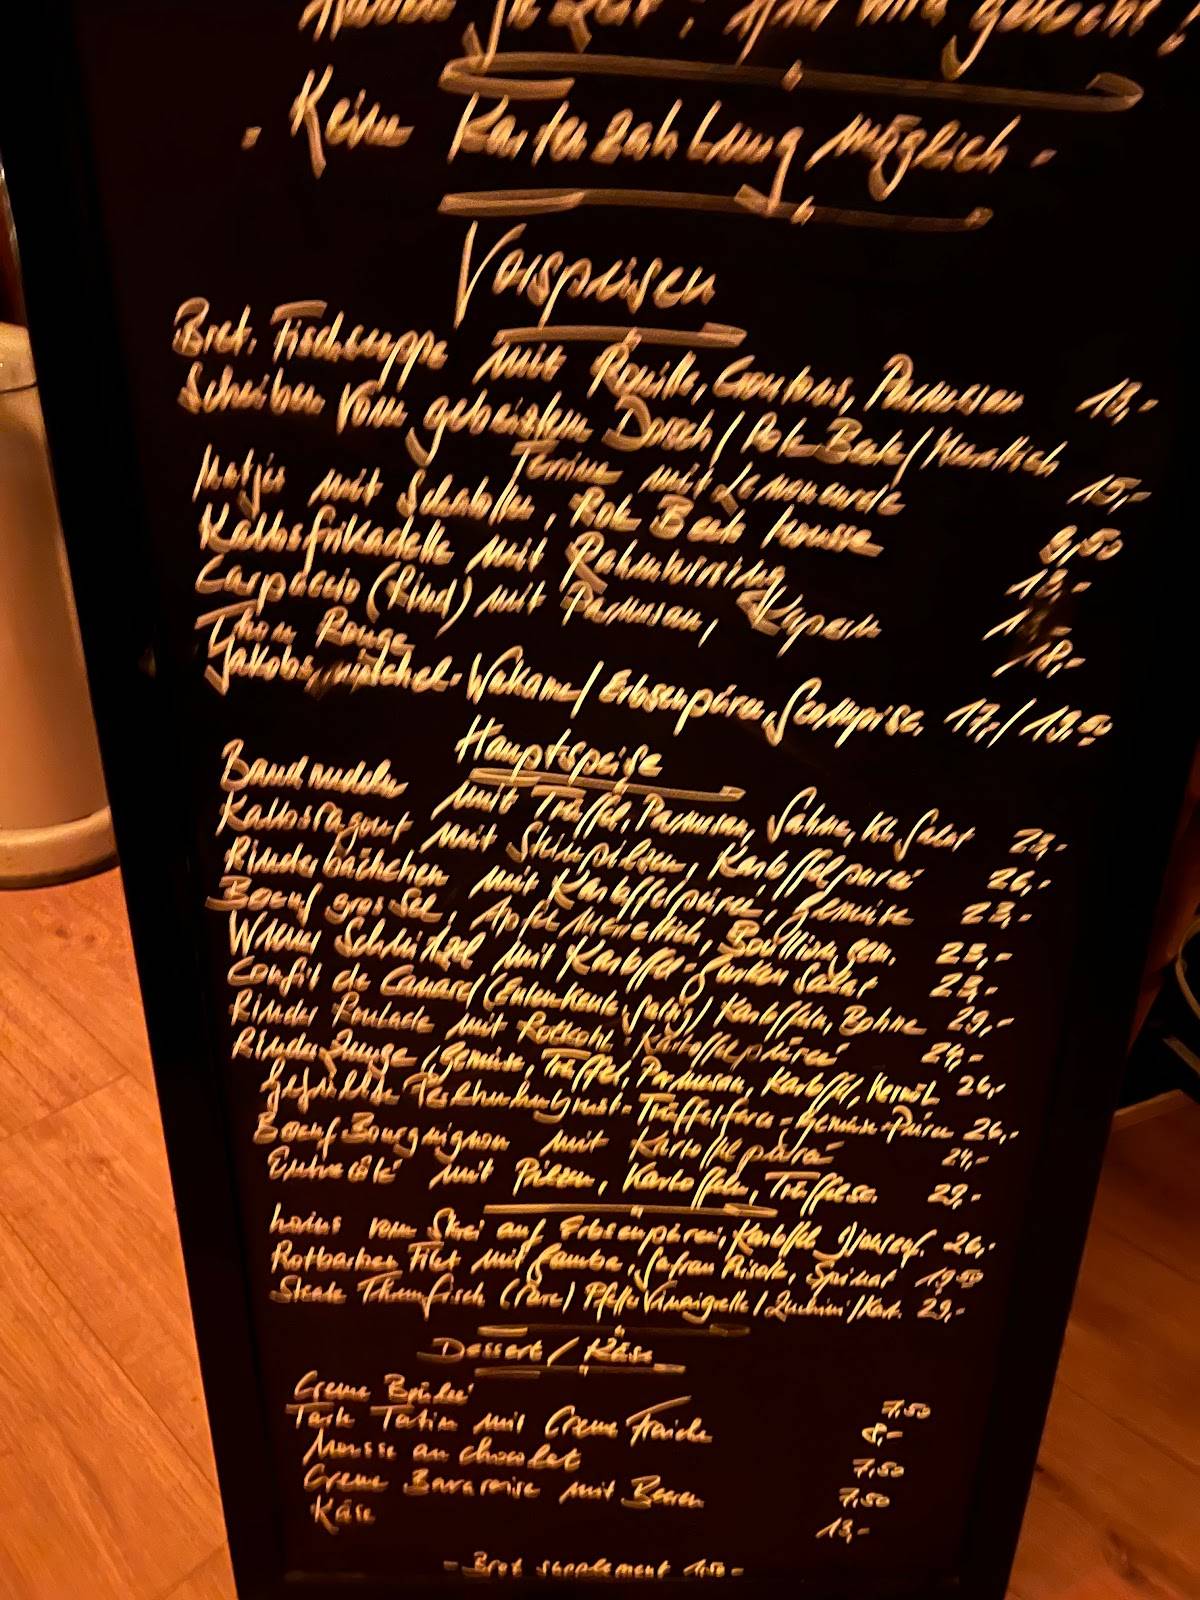 Keine Kartenzahlung möglich
Vorspeisen
Bret. Fischsuppe mit Rouille, Croutons, Parmesan 13,-
Scheiben vom gebeiztem Dorsch / Rote Beete / Meerrettich 15,-
Terrine mit
Matjes mit Rote Beete Mousse
Kalbsfrikadelle mit Rahmwirsing
Carpaccio (Rind) mit Parmesan, Kapern
Thon Rouge 18,-
Jakobsmuschel- Wakame / Erbsenpüree 17,-/19,50
Hauptspeise
Bandnudeln mit Trüffel, Parmesan, Sahne, kl. Salat 23,-
Kalbsragout mit Steinpilzen, Kartoffelpüreé 26,-
Rinderbäckchen mit Kartoffelpüreé, Gemüse 23,-
Boeuf gros sel, Apfelmeerettich, Bouillongem. 23,-
Wiener Schnitzel mit Kartoffel-Gurken Salat 23,-
Confit de Canard (Entenkeule, salzig) Kartoffeln, Bohne 29,-
Rinder Roulade mit Rotkohl, Kartoffelpüreé 24,-
Rinderzunge, Gemüse, Trüffel, Parmesan, Kartoffel, 26,-
Gefüllte Perlhuhnbrust-Trüffelfarce-Gemüse-Püree 26,-
Boeuf Bourguignon mit Kartoffelpüreé 24,-
Entrecôte mit Pilzen, Kartoffeln, 29,-
vom Skrei auf Erbsenpüree, Kartoffel 26,-
Rotbarben Filet mit Gamba, Safran Risotto, Spinat 19,50
Steak Thunfisch (rare) Pfeffer Vinaigrette / Zuchini / Kart. 29,-
Dessert / Käse
Creme Brûleé 7,50
Tarte Tatin mit Creme Fraiche 8,-
Mousse au chocolat 7,50
Creme Bavaroise mit Beeren 7,50
Käse 13,-
- Brot supplement 1,50 -